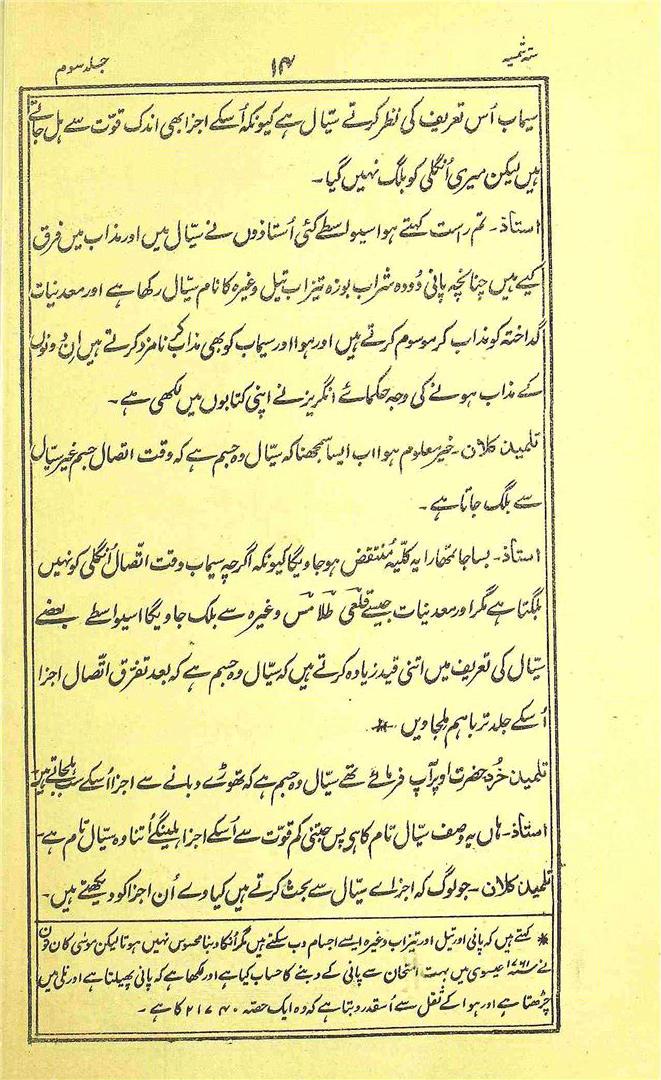 ستہ شمسیہ ۱۴ جلد سوم
سیماب اُس تعریف کی نظر کرتے سیّال ہے کیونکہ اُسکے اجزا بھی اندک قوّت سے ہل جاتے
ہیں لیکن میری اُنگلی کو بلگ نہیں گیا۔
استاذ۔ تم راست کہتے ہو اسیواسطے کئی اُستاذوں نے سیّال میں اور مذاب میں فرق
کیے ہیں چنانچہ پانی دُودہ شراب بوزہ تیزاب تیل وغیرہ کا نام سیّال رکھا ہے اور معدنیات
گداختہ کو مذاب کر موسوم کرتے ہیں اور ہوا اور سیماب کو بھی مذاب کر نامزد کرتے ہیں اِن دونوں
کے مذاب ہونے کی وجہ حکمائے انگریز نے اپنی کتابوں میں لکھی ہے۔
تلمیذ کلان۔ خیر معلوم ہوا اب ایسا سمجھنا کہ سیّال وہ جسم ہے کہ وقت اتصال جسم غیر سیّال
سے بلگ جاتا ہے۔
استاذ۔ بسا جا تمھارا یہ کلّیہ مُنتقض ہو جاویگا کیونکہ اگرچہ سیماب وقت اتّصال اُنگلی کو نہیں
بلگتا ہے مگر اور معدنیات جیسے قلعی طلا مس وغیرہ سے بلگ جاویگا اسیواسطے بعضے
سیّال کی تعریف میں اتنی قید زیادہ کرتے ہیں کہ سیّال وہ جسم ہے کہ بعد تفرق اتّصال اجزا
اُسکے جلد تر باہم ملجاویں *
تلمیذ خُرد حضرت اوپر آپ فرمائے تھے سیّال وہ جسم ہے کہ تھوڑے دبانے سے اجزا اُسکے سب ہلجاتے ہیں
استاذ۔ ہاں یہ وصف سیّال تام کا ہی پس جتنی کم قوّت سے اُسکے اجزا ہلینگے اُتنا وہ سیّال تام ہے۔
تلمیذ کلان۔ جو لوگ کہ اجزاے سیّال سے بحث کرتے ہیں کیا وے اُن اجزا کو دیکھتے ہیں۔
* کہتے ہیں کہ پانی اور تیل اور تیزاب وغیرہ ایسے اجسام دب سکتے ہیں مگر اُنکا دبنا محسوس نہیں ہوتا لیکن موسٰی کان ٹون
نے سنہ ۱۷۶۱ عیسوی میں بہت امتحان سے پانی کے دبنے کا حساب کیا ہے اور لکھا ہے کہ پانی پھیلتا ہے اور نلی میں
چڑھتا ہے اور ہوا کے ثقل سے اُسقدر دبتا ہے کہ وہ ایک حصّہ ۲۱۷۴۰ کا ہے۔